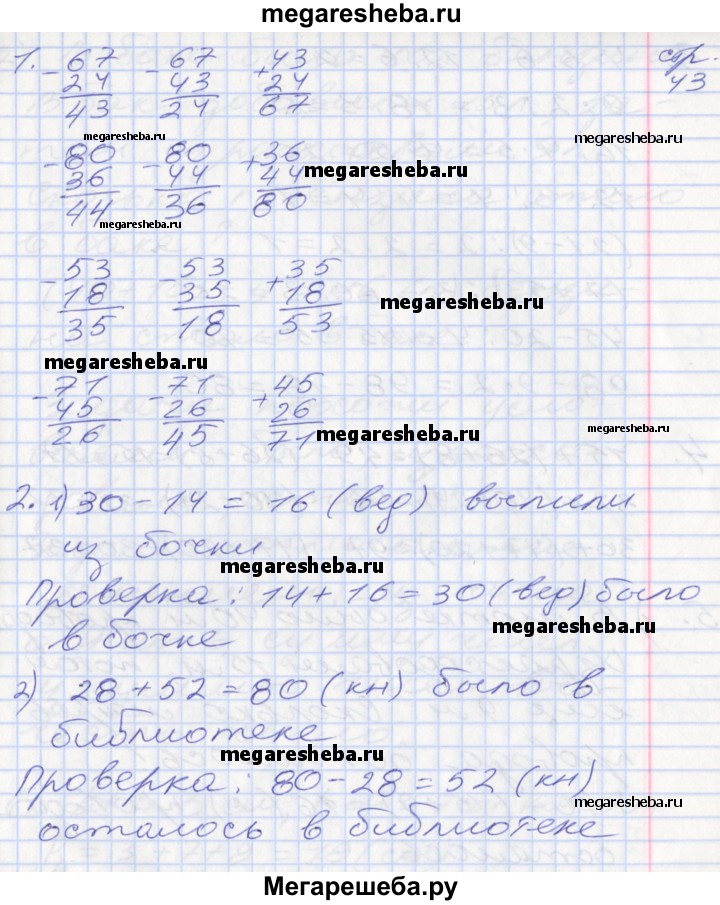 megaresheba.ru
1. -67 -67 +43 стр.
24 43 24 43
43 24 67
megaresheba.ru megaresheba.ru
-80 -80 +36
36 44 44 megaresheba.ru
44 36 80
megaresheba.ru
-53 -53 +35
18 35 18 megaresheba.ru
35 18 53
megaresheba.ru
-71 -71 +45
45 26 26
26 45 71 megaresheba.ru
2. 1) 30 - 14 = 16 (вед) вылили
из бочки
megaresheba.ru
Проверка: 14 + 16 = 30 (вед) было
megaresheba.ru
в бочке
2) 28 + 52 = 80 (кн) было в
библиотеке
megaresheba.ru
Проверка: 80 - 28 = 52 (кн)
megaresheba.ru
осталось в библиотеке
Мегарешеба.ру